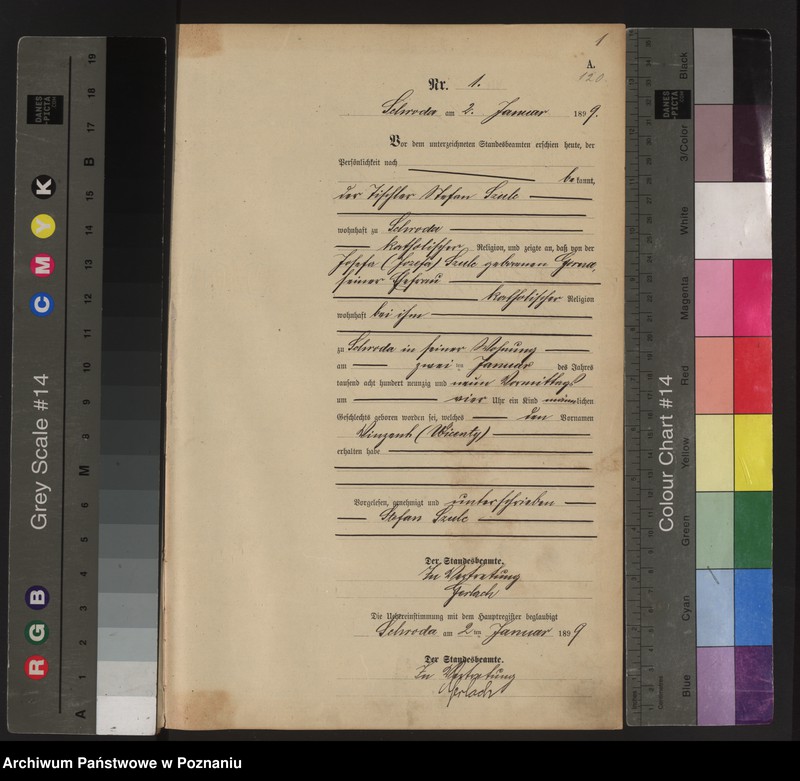 1
A.
120.
Nr. 1.
Schroda am 2. Januar 1899.
Vor dem unterzeichneten Standesbeamten erschien heute, der
Persönlichkeit nach
be kannt,
der Tischler Stefan Szulc
wohnhaft zu Schroda
katholischer Religion, und zeigte an, daß von der
Josefa (Jozefa) Szulc geborenen Gorna,
seiner Ehefrau
katholischer Religion
wohnhaft bei ihm
zu Schroda in seiner Wohnung
am zwei ten Januar des Jahres
tausend acht hundert neunzig und neun Vormittags
um vier Uhr ein Kind männlichen
Geschlechts geboren worden sei, welches den Vornamen
Vinzent (Wicenty)
erhalten habe
Vorgelesen, genehmigt und unterschrieben
Stefan Szulc
Der Standesbeamte.
In Vertretung
Gerlach
Die Uebereinstimmung mit dem Hauptregister beglaubigt
Schroda am 2 ten Januar 1899
Der Standesbeamte.
In Vertretung
Gerlach
Grey Scale #14
A 1 2 3 4 5 6 M 8 9 10 11 12 13 14 15 B 17 18 19
R G B C M Y K
DANES
-PICTA
.COM
Colour Chart #14
Blue Cyan Green Yellow Red Magenta White 3/Color Black
DANES
-PICTA
.COM
Archiwum Państwowe w Poznaniu